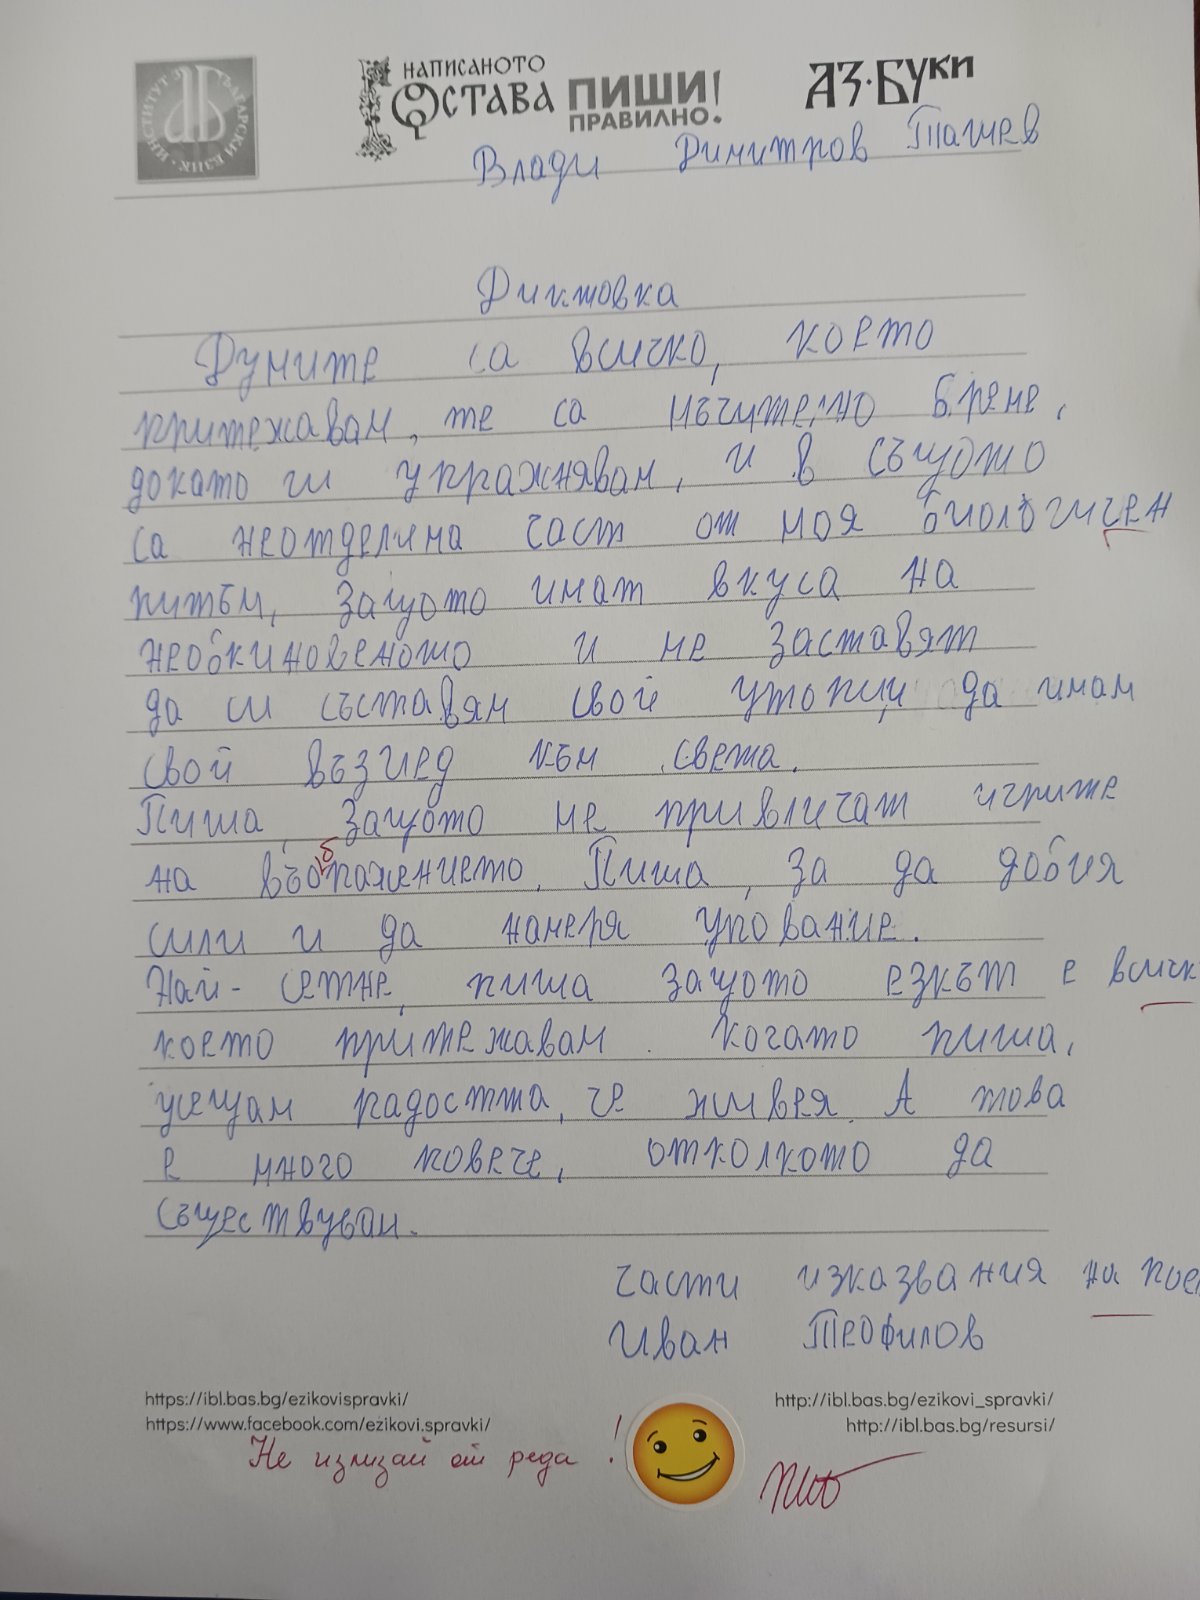 ИНСТИТУТ ЗА БЪЛГАРСКИ ЕЗИК
НАПИСАНОТО ОСТАВА ПИШИ ПРАВИЛНО!
АЗ·БУКИ
Влади Димитров Ташев
Диктовка
Думите са всичко, което
притежавам, те са мъчително бреме,
докато ги упражнявам, и в същото
са неотделима част от моя биологичен
ритъм, защото имат вкуса на
необкиновеното и ме заставят
да си съставям свой утопии да имам
свой възглед към света.
Пиша, защото ме привличат игрите
на въображението. Пиша, за да добия
сили и да намеря упование.
Най-сетне, пиша защото езкът е всичк
което притежавам. Когато пиша,
усещам радостта, че живея. А това
е много повече, отколкото да
съществувам.
части изказвания на пое
Иван Теофилов
https://ibl.bas.bg/ezikovispravki/
http://ibl.bas.bg/ezikovi_spravki/
https://www.facebook.com/ezikovi.spravki/
http://ibl.bas.bg/resursi/
Не излизай от реда!